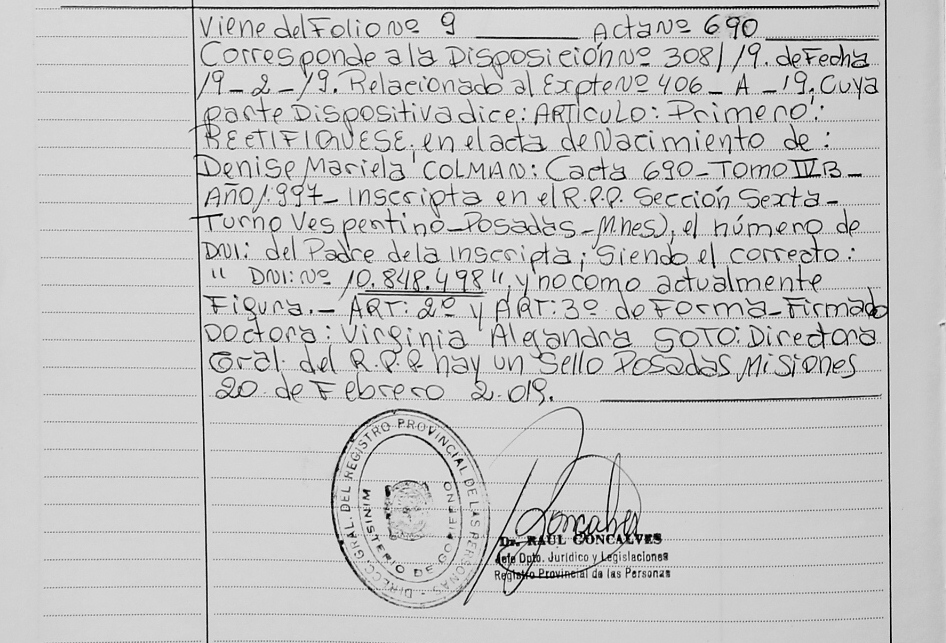 Viene del Folio Nº 9 ________ Acta Nº 690 ________
Corresponde a la Disposición Nº 308/19. de Fecha
19-2-19. Relacionado al Expte Nº 406_A_19. Cuya
parte Dispositiva dice: ARTICULO: Primero:
RECTIFIQUESE. en el acta de Nacimiento de:
Denise Mariela COLMAN: Cacta 690-Tomo IV B_
AÑO/1.997_ Inscripta en el R.P.P. Sección Sexta-
Turno Vespertino_Posadas_Mnes), el número de
DNI: del Padre de la Inscripta; Siendo el correcto:
" DNI: Nº 10.848.498", y no como actualmente
Figura.- ART: 2º y ART: 3º de Forma_Firmado
Doctora: Virginia Alejandra SOTO: Directora
Gral. del R.P.P. hay un Sello Posadas, Misiones
20 de Febrero 2.019. ________
DIREC. GRAL. DEL REGISTRO PROVINCIAL DE LAS PERSONAS
MINISTERIO DE GOBIERNO
Dr. RAUL GONCALVES
Jefe Dpto. Jurídico y Legislaciones
Registro Provincial de las Personas